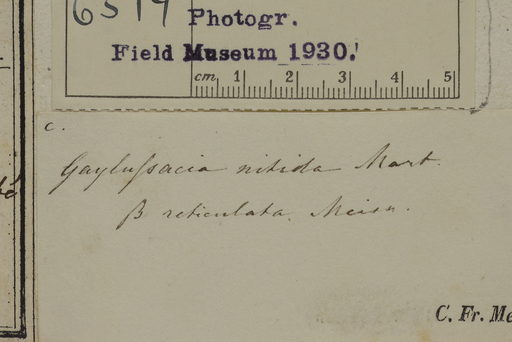 6519
Photogr.
Field Museum 1930.
cm 1 2 3 4 5
c.
Gayluſsacia nitida Mart.
β reticulata. Meisn.
C. Fr. Me